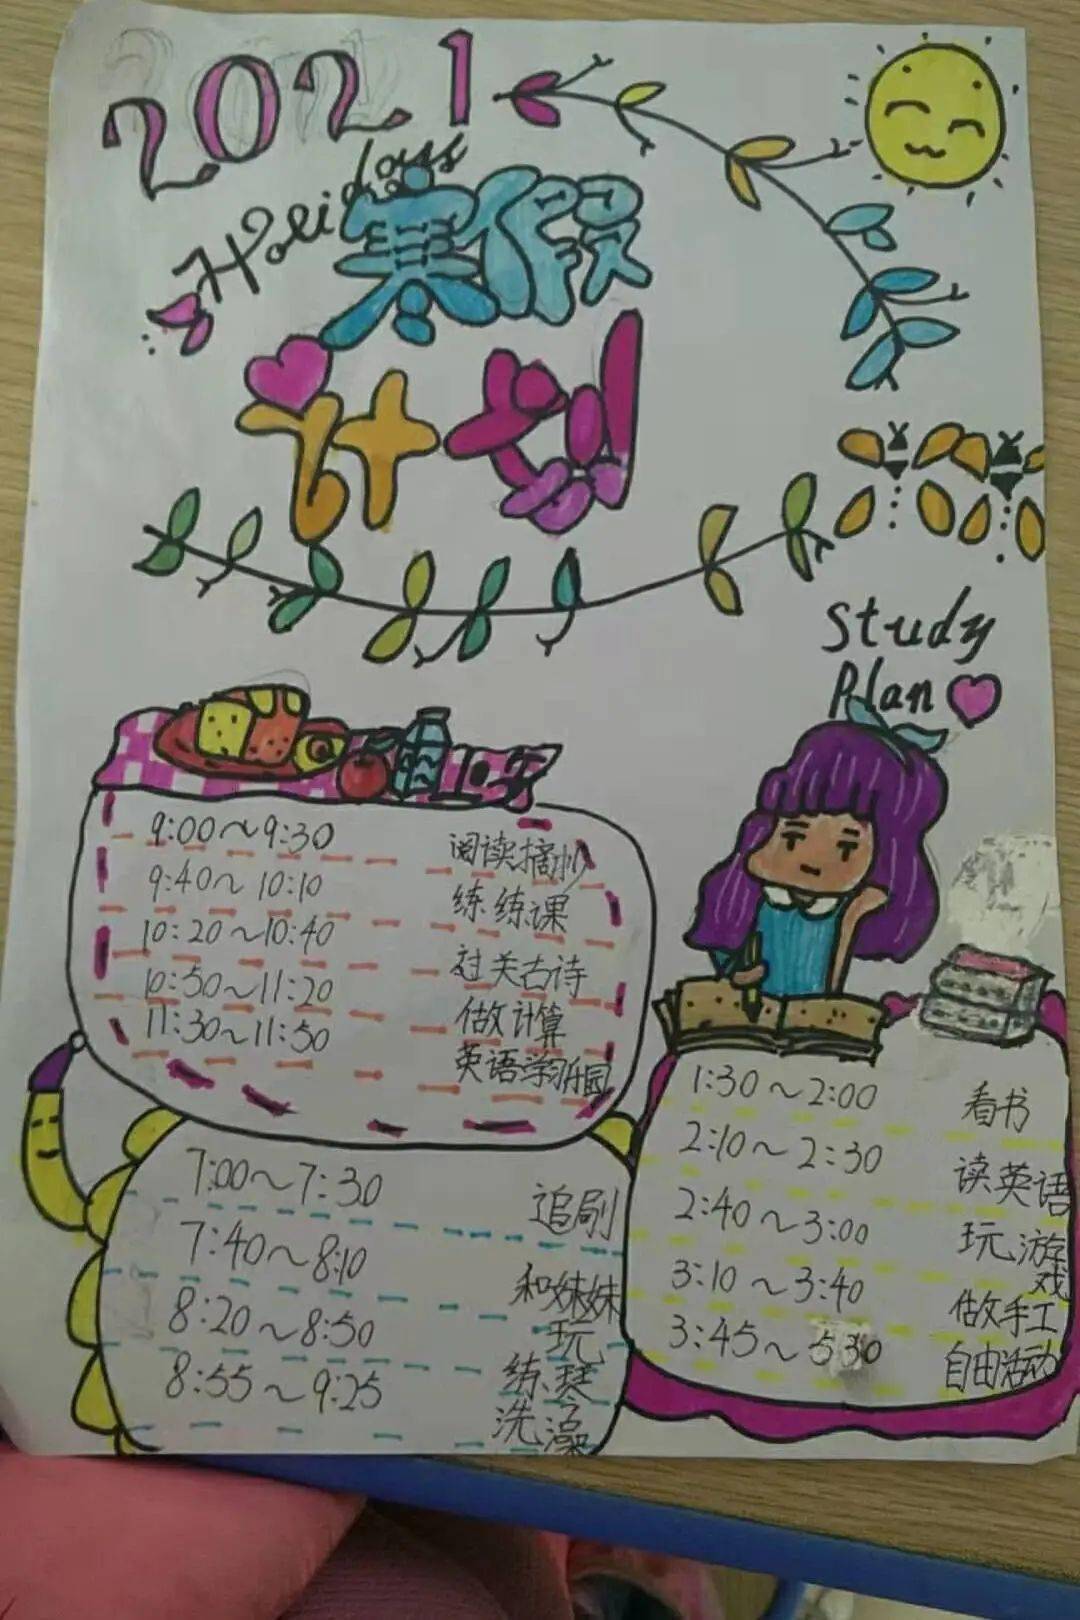 2021
Holidays
寒假
计划
Study
Plan
9:00～9:30 阅读摘抄
9:40～10:10 练练课
10:20～10:40 过关古诗
10:50～11:20 做计算
11:30～11:50 英语学习乐园
1:30～2:00 看书
2:10～2:30 读英语
2:40～3:00 玩游
戏
3:10～3:40 做手工
3:45～5:30 自由活动
7:00～7:30 追剧
7:40～8:10 和妹妹
玩
8:20～8:50 练琴
8:55～9:25 洗澡